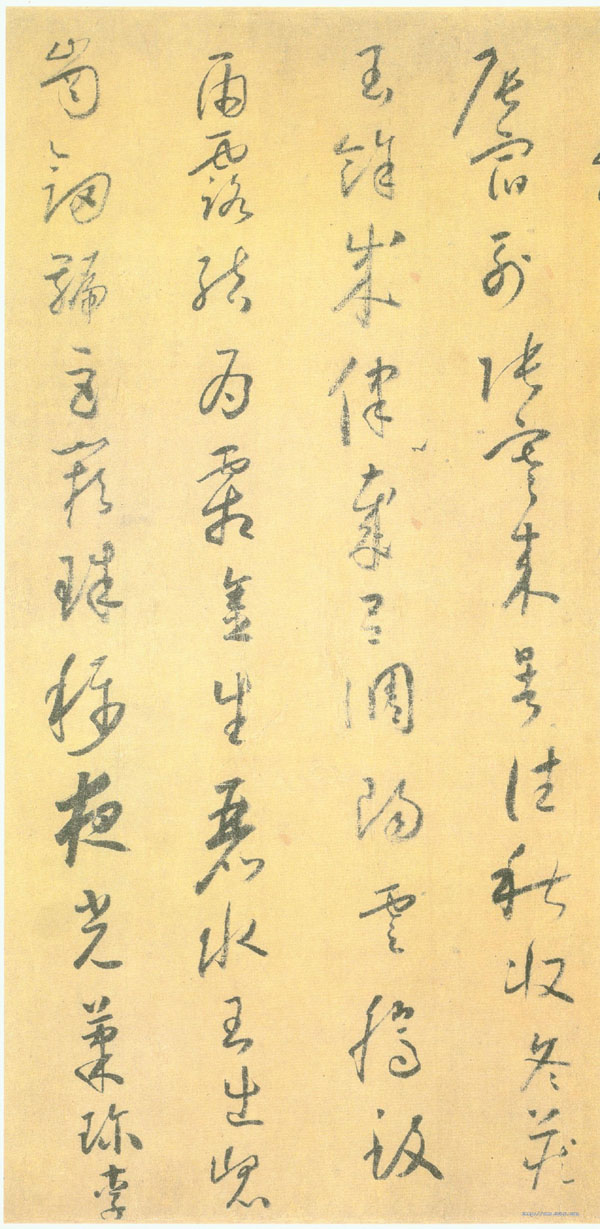 辰宿列張寒来暑往秋收冬藏
閏餘成律歲吕調陽雲騰致
雨露結為霜金生麗水玉出崑
崗劍號巨闕珠稱夜光菓珍李